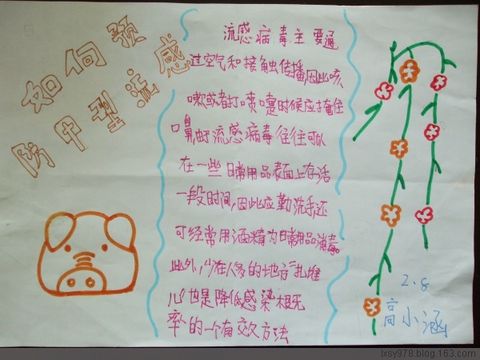 如何预
防甲型流感
流感病毒主要通
过空气和接触传播因此咳
嗽或者打喷嚏时候应掩住
口鼻 流感病毒往往可以
在一些日常用品表面上存活
一段时间,因此应勤洗手还
可经常用酒精为日常用品消毒
此外,少在人多的地方扎堆
儿也是降低感染概
率的一个有效方法
2.8
高小涵
lxsy978.blog.163.com